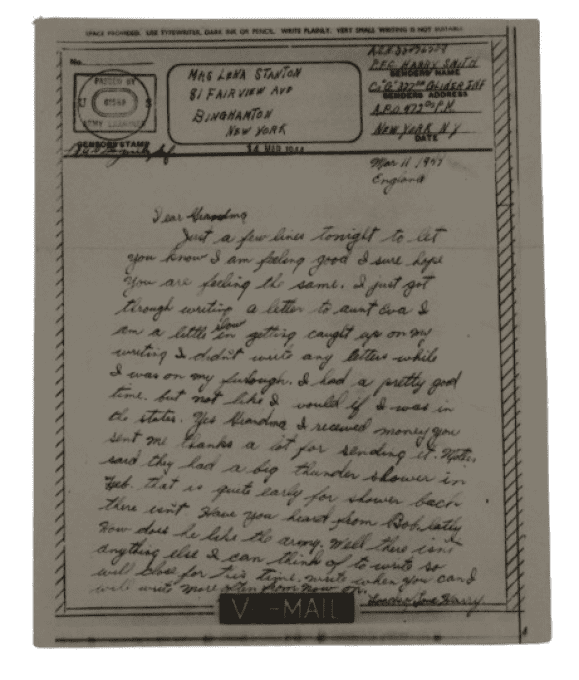 SPACE PROVIDED. USE TYPEWRITER, DARK INK OR PENCIL. WRITE PLAINLY. VERY SMALL WRITING IS NOT SUITABLE.
No.
PASSED BY
U S
ARMY EXAMINER
CENSOR'S STAMP
MRS LENA STANTON
81 FAIRVIEW AVE
BINGHAMTON
NEW YORK
14 MAR 1944
P.F.C. HARRY SMITH
SENDER'S NAME
Co "G" 327th GLIDER INF
SENDER'S ADDRESS
A.P.O. 472 % P.M.
NEW YORK N.Y
DATE
Mar 11 1944
England
Dear Grandma
Just a few lines tonight to let
you know I am feeling good I sure hope
you are feeling the same. I just got
through writing a letter to aunt Eva I
am a little slow in getting caught up on my
writing I didn't write any letters while
I was on my furlough. I had a pretty good
time. but not like I would if I was in
the states. Yes Grandma I received money you
sent me thanks a lot for sending it.
said they had a big thunder shower in
Feb. that is quite early for shower back
there isn't Have you heard from Bob. lately
How does he like the army. Well there isn't
anything else I can think of to write so
will close for this time. write when you can I
will write more often from now on.
Loads of Love Harry
V - MAIL